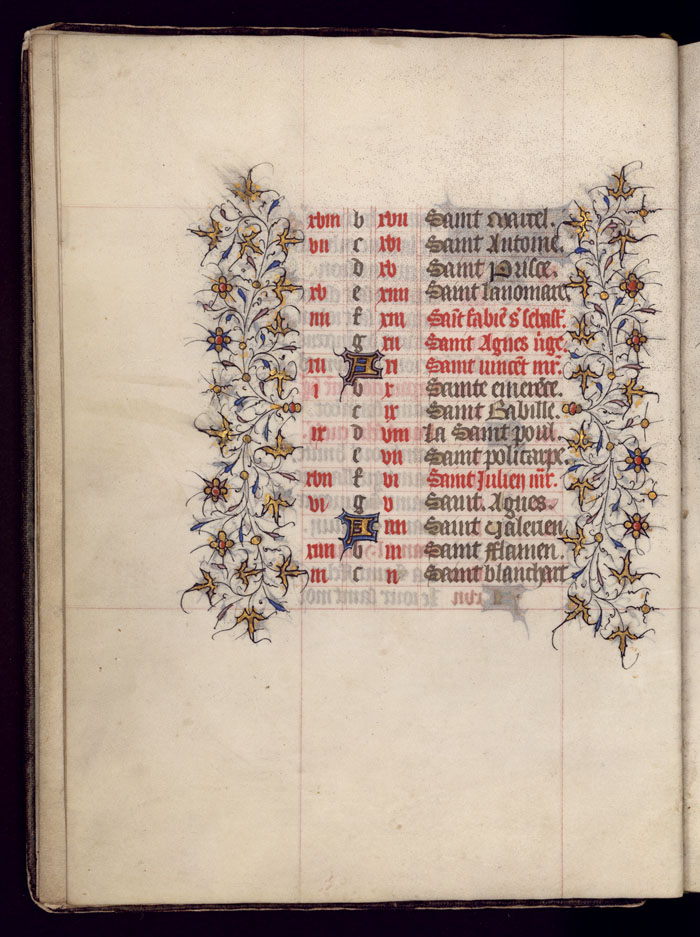 xviii b xvii Saint Marcel.
vii c xvi Saint Antoine.
d xv Saint Prisce.
xv e xiiii Saint lanomarc.
iiii f xiii Sait fabiē s sebast.
g xii Saint Agnes v̄ge.
xii A xi Saint vincēt mr̄.
i b x Sainte emerēce.
c ix Saint Babille.
ix d viii la Saint poul.
e vii Saint policarpe.
xvii f vi Saint Julien mr̄.
vi g v Saint. Agnes.
A iiii Saint Galerien.
xiiii b iii Saint fflamen.
iii c ii Saint blanchart